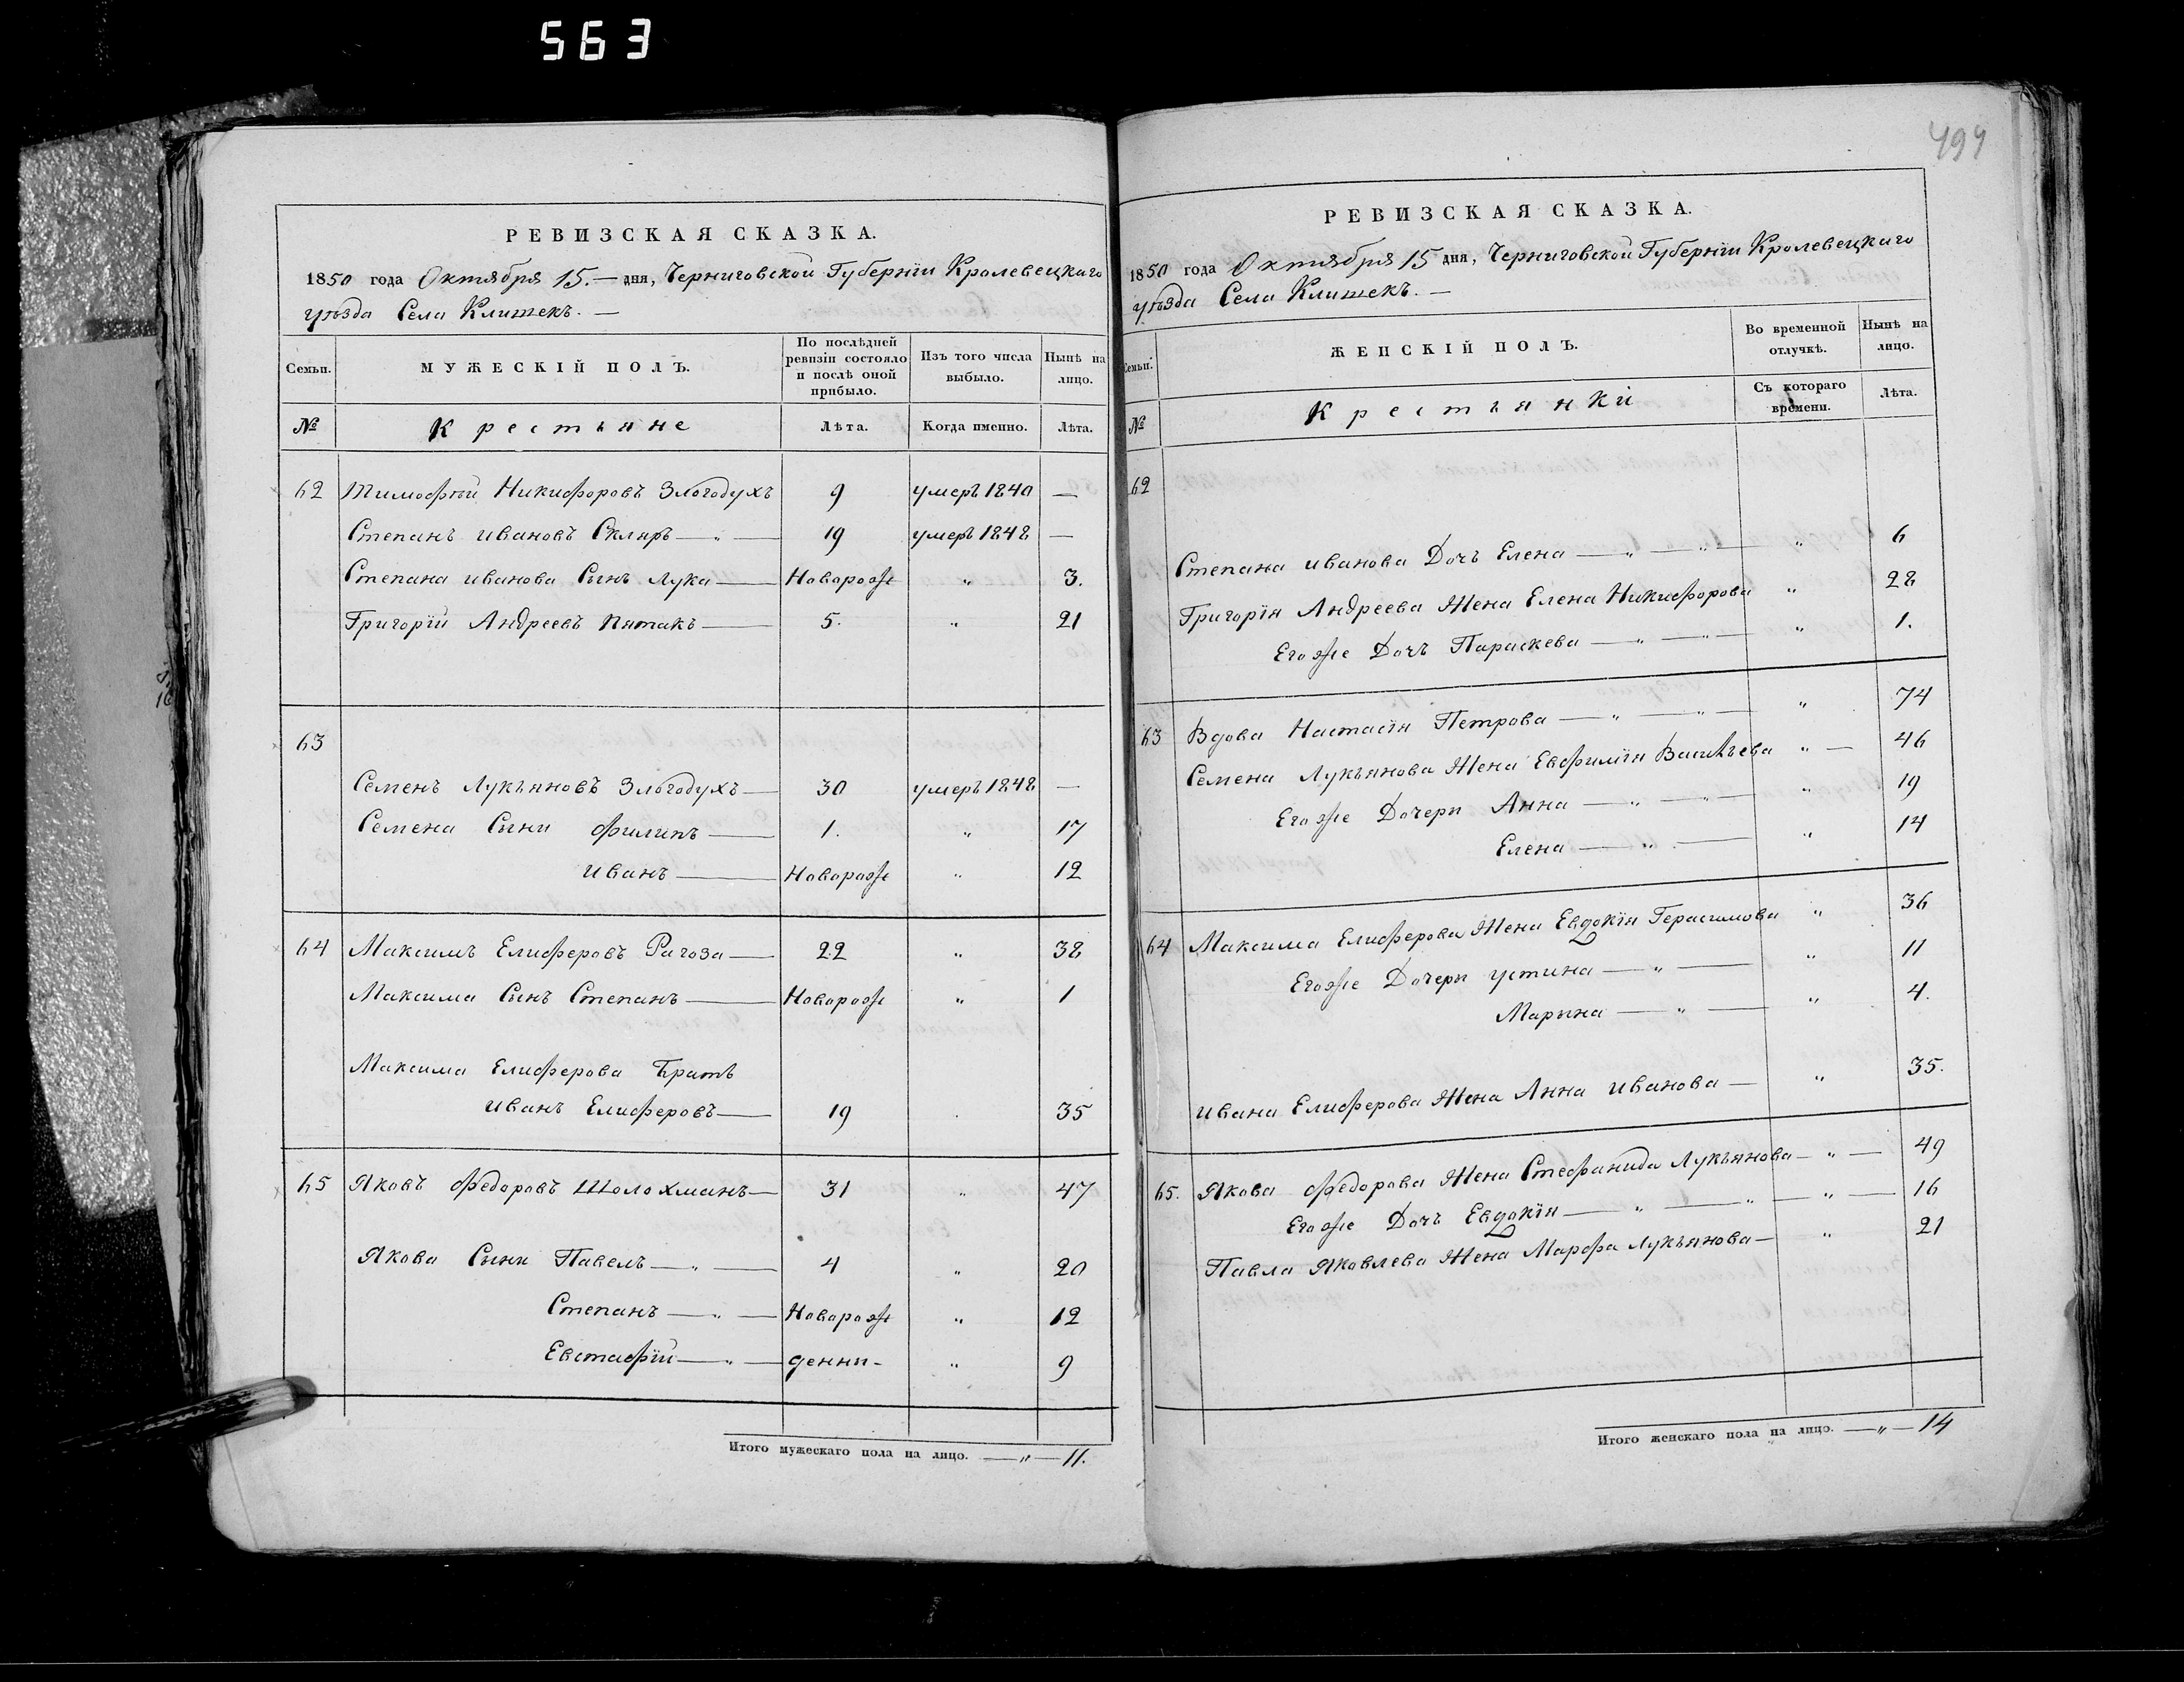 563
499
РЕВИЗСКАЯ СКАЗКА.
1850 года Октября 15.— дня, Черниговской Губернїи Кролевецкаго
уѣзда Села Клишекъ. —
Семьи. МУЖЕСКІЙ ПОЛЪ. По послѣдней ревизіи состояло и послѣ оной прибыло. Изъ того числа выбыло. Нынѣ на лицо.
№ Крестьяне Лѣта. Когда именно. Лѣта.
62 Тимофѣй Никифоровъ Злыгодухъ 9 умеръ 1840 —
Степанъ Ивановъ Скляръ — „ — 19 умеръ 1848 —
Степана Иванова Сынъ Лука — Новорож „ 3.
Григорїй Андреевъ Пятакъ — 5. „ 21
63
Семенъ Лукъяновъ Злыгодухъ — 30 умеръ 1848 —
Семена Сыни Филипъ — 1. „ 17
Иванъ — Новорож „ 12
64 Максимъ Елисферовъ Рагоза — 22 „ 38
Максима Сынъ Степанъ — Новорож „ 1
Максима Елисферова Братъ
Иванъ Елисферовъ — 19 . 35
65 Яковъ Федоровъ Шолохманъ — 31 „ 47
Якова Сыни Павелъ — „ — 4 „ 20
Степанъ — „ — Новорож „ 12
Евстафїй — „ — денни - „ 9
Итого мужескаго пола на лицо. — „ — 11.
РЕВИЗСКАЯ СКАЗКА.
1850 года Октября 15 дня, Черниговской Губернїи Кролевецкаго
уѣзда Села Клишекъ. —
Семьи. ЖЕНСКІЙ ПОЛЪ. Во временной отлучкѣ. Нынѣ на лицо.
№ Крестьянки Съ котораго времени. Лѣта.
62
Степана Иванова Дочъ Елена — „ — „ — „ 6
Григорїя Андреева Жена Елена Никифорова „ 28
Егоже Дочъ Параскева — „ — „ — „ 1.
63 Вдова Настасїя Петрова — „ — „ — „ 74
Семена Лукъянова Жена Евфимїя Васильева „ — 46
Егоже Дочери Анна — „ — „ — „ 19
Елена — „ — „ 14
64 Максима Елисферова Жена Евдокїя Герасимова „ 36
Егоже Дочери Устина — „ — „ 11
Марина — „ — „ 4.
Ивана Елисферова Жена Анна Иванова — „ 35.
65. Якова Федорова Жена Стефанида Лукъянова — „ — 49
Егоже Дочъ Евдокїя — „ — „ — „ — 16
Павла Яковлева Жена Марфа Лукъянова — „ 21
Итого женскаго пола на лицо. — „ — 14